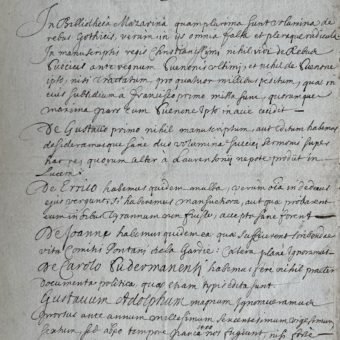 In Bibliotheca Mazarina quamplurima sunt volumina de
rebus Gothicis, verum in iis omnia falsa et pleraque ridicula
In manuscriptis regis Christianissimi nihil vidi de Rebus
Suecicis ante regnum Suenonis et nihil de Suenone
ipso, nisi tractatum pro quatuor millibus peditum, quas in
eius subsidium a Francisco primo missa sunt, quorumque
maxima pars cum Suenone ipso in acie cecidit
De Gustavo primo nihil manuscriptum, aut editum habemus
desideramusque sane duo volumina Suecico sermone super
hac re, quorum alter a Laurentonis nepote prodiit in
Lucem
De Errico habemus quidem multa, verum omnia in dedecus
ejus vergunt: si haberemus manuscripta, aut quae probarent
eum in fratrem Tyrannum non fuisse, accepta sane forent
De Joanne habemus quidem ea quae sufficerent scribendae
vita Comitis Pontani de la Gardie: Caetera plane Ignoramus
De Carolo Sudermanensi habemus fere nihil praeter
documenta politica, quae etiam typis edita sunt
Gustavum Adolphum magnum Ignoramus
prorsus ante annum millesimum sexcentesimum vigesimum
sextum, sed ab eo tempore pauca nos fugiunt, nisi forte